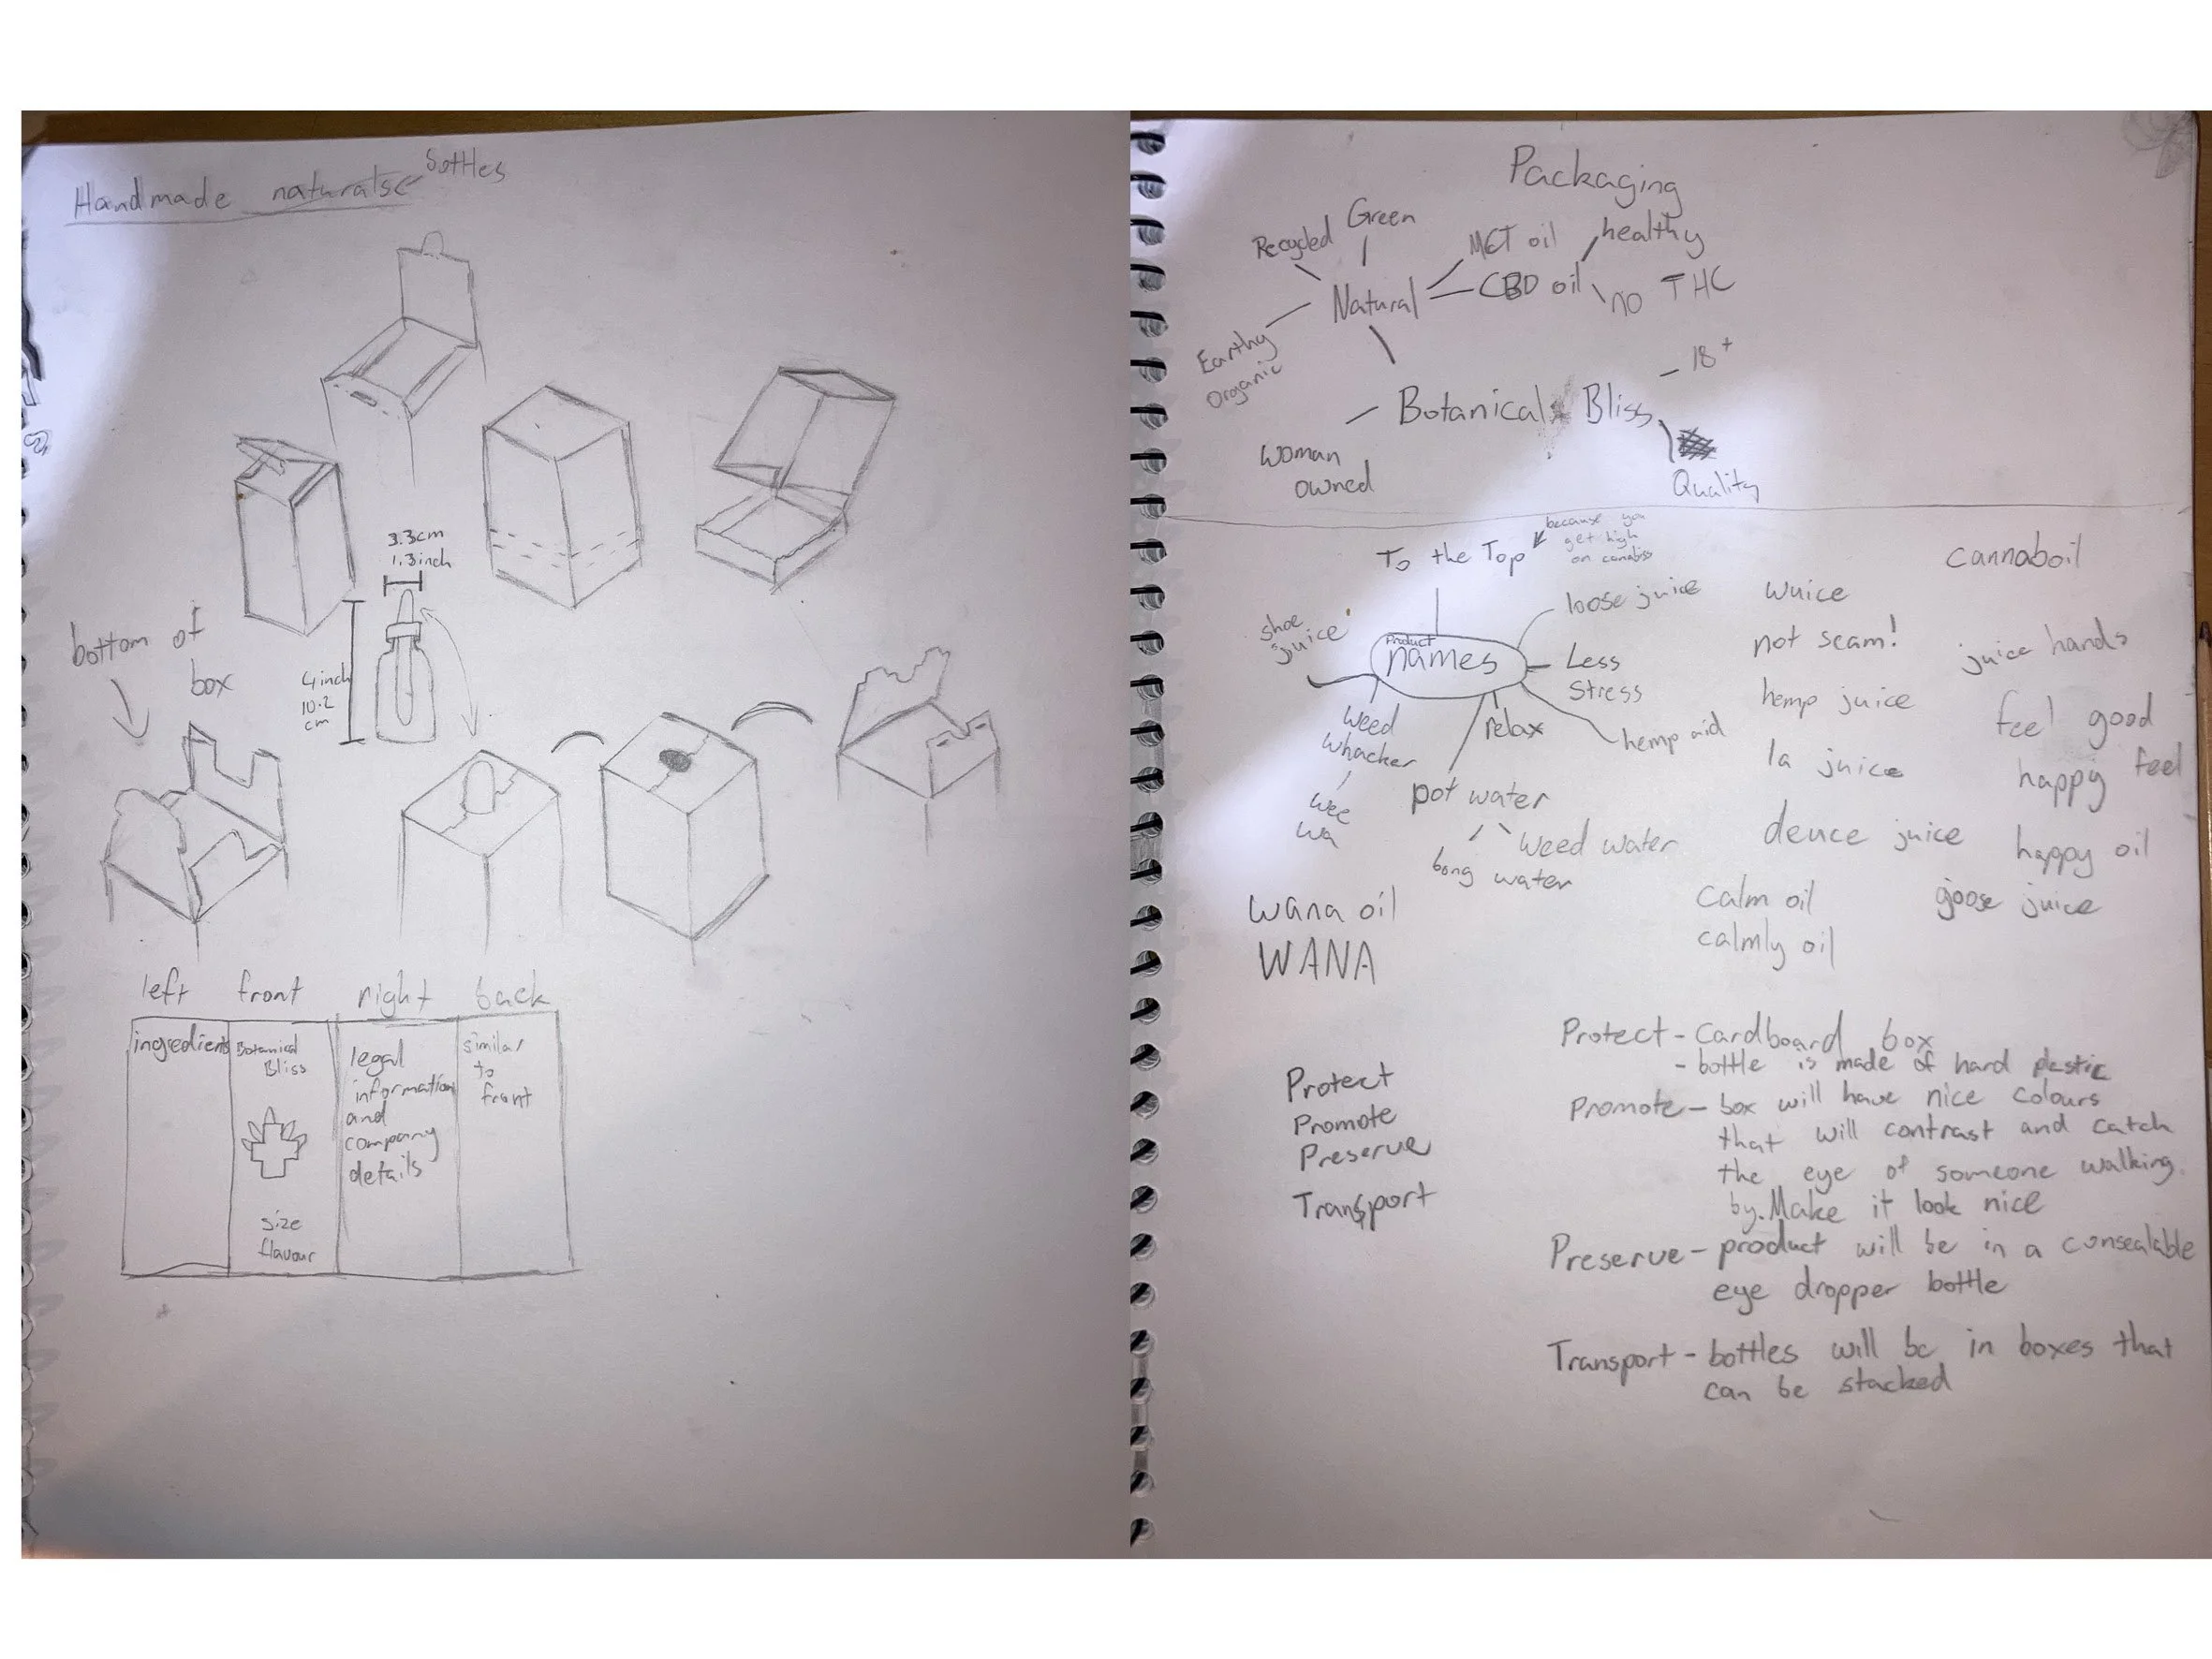 Handmade naturals bottles
3.3cm
1.3inch
4inch
10.2
cm
bottom of
box
left front right back
ingredients
Botanical
Bliss
size
flavour
legal
information
and
company
details
similar
to
front
Packaging
Recycled
Green
MCT oil
healthy
Natural
CBD oil
no THC
Earthy
Organic
18+
Botanical Bliss
Woman
owned
Quality
To the Top
because you
get high
on canabiss
cannaboil
shoe
juice
Product
names
loose juice
Less
Stress
relax
hemp aid
weed
whacker
wee
wa
pot water
weed water
bong water
wuice
not scam!
juice hands
hemp juice
feel good
la juice
happy feel
deuce juice
happy oil
calm oil
goose juice
calmly oil
wana oil
WANA
Protect
Promote
Preserve
Transport
Protect - Cardboard box
- bottle is made of hard plastic
Promote - box will have nice colours
that will contrast and catch
the eye of someone walking
by. Make it look nice
Preserve - product will be in a consealable
eye dropper bottle
Transport - bottles will be in boxes that
can be stacked